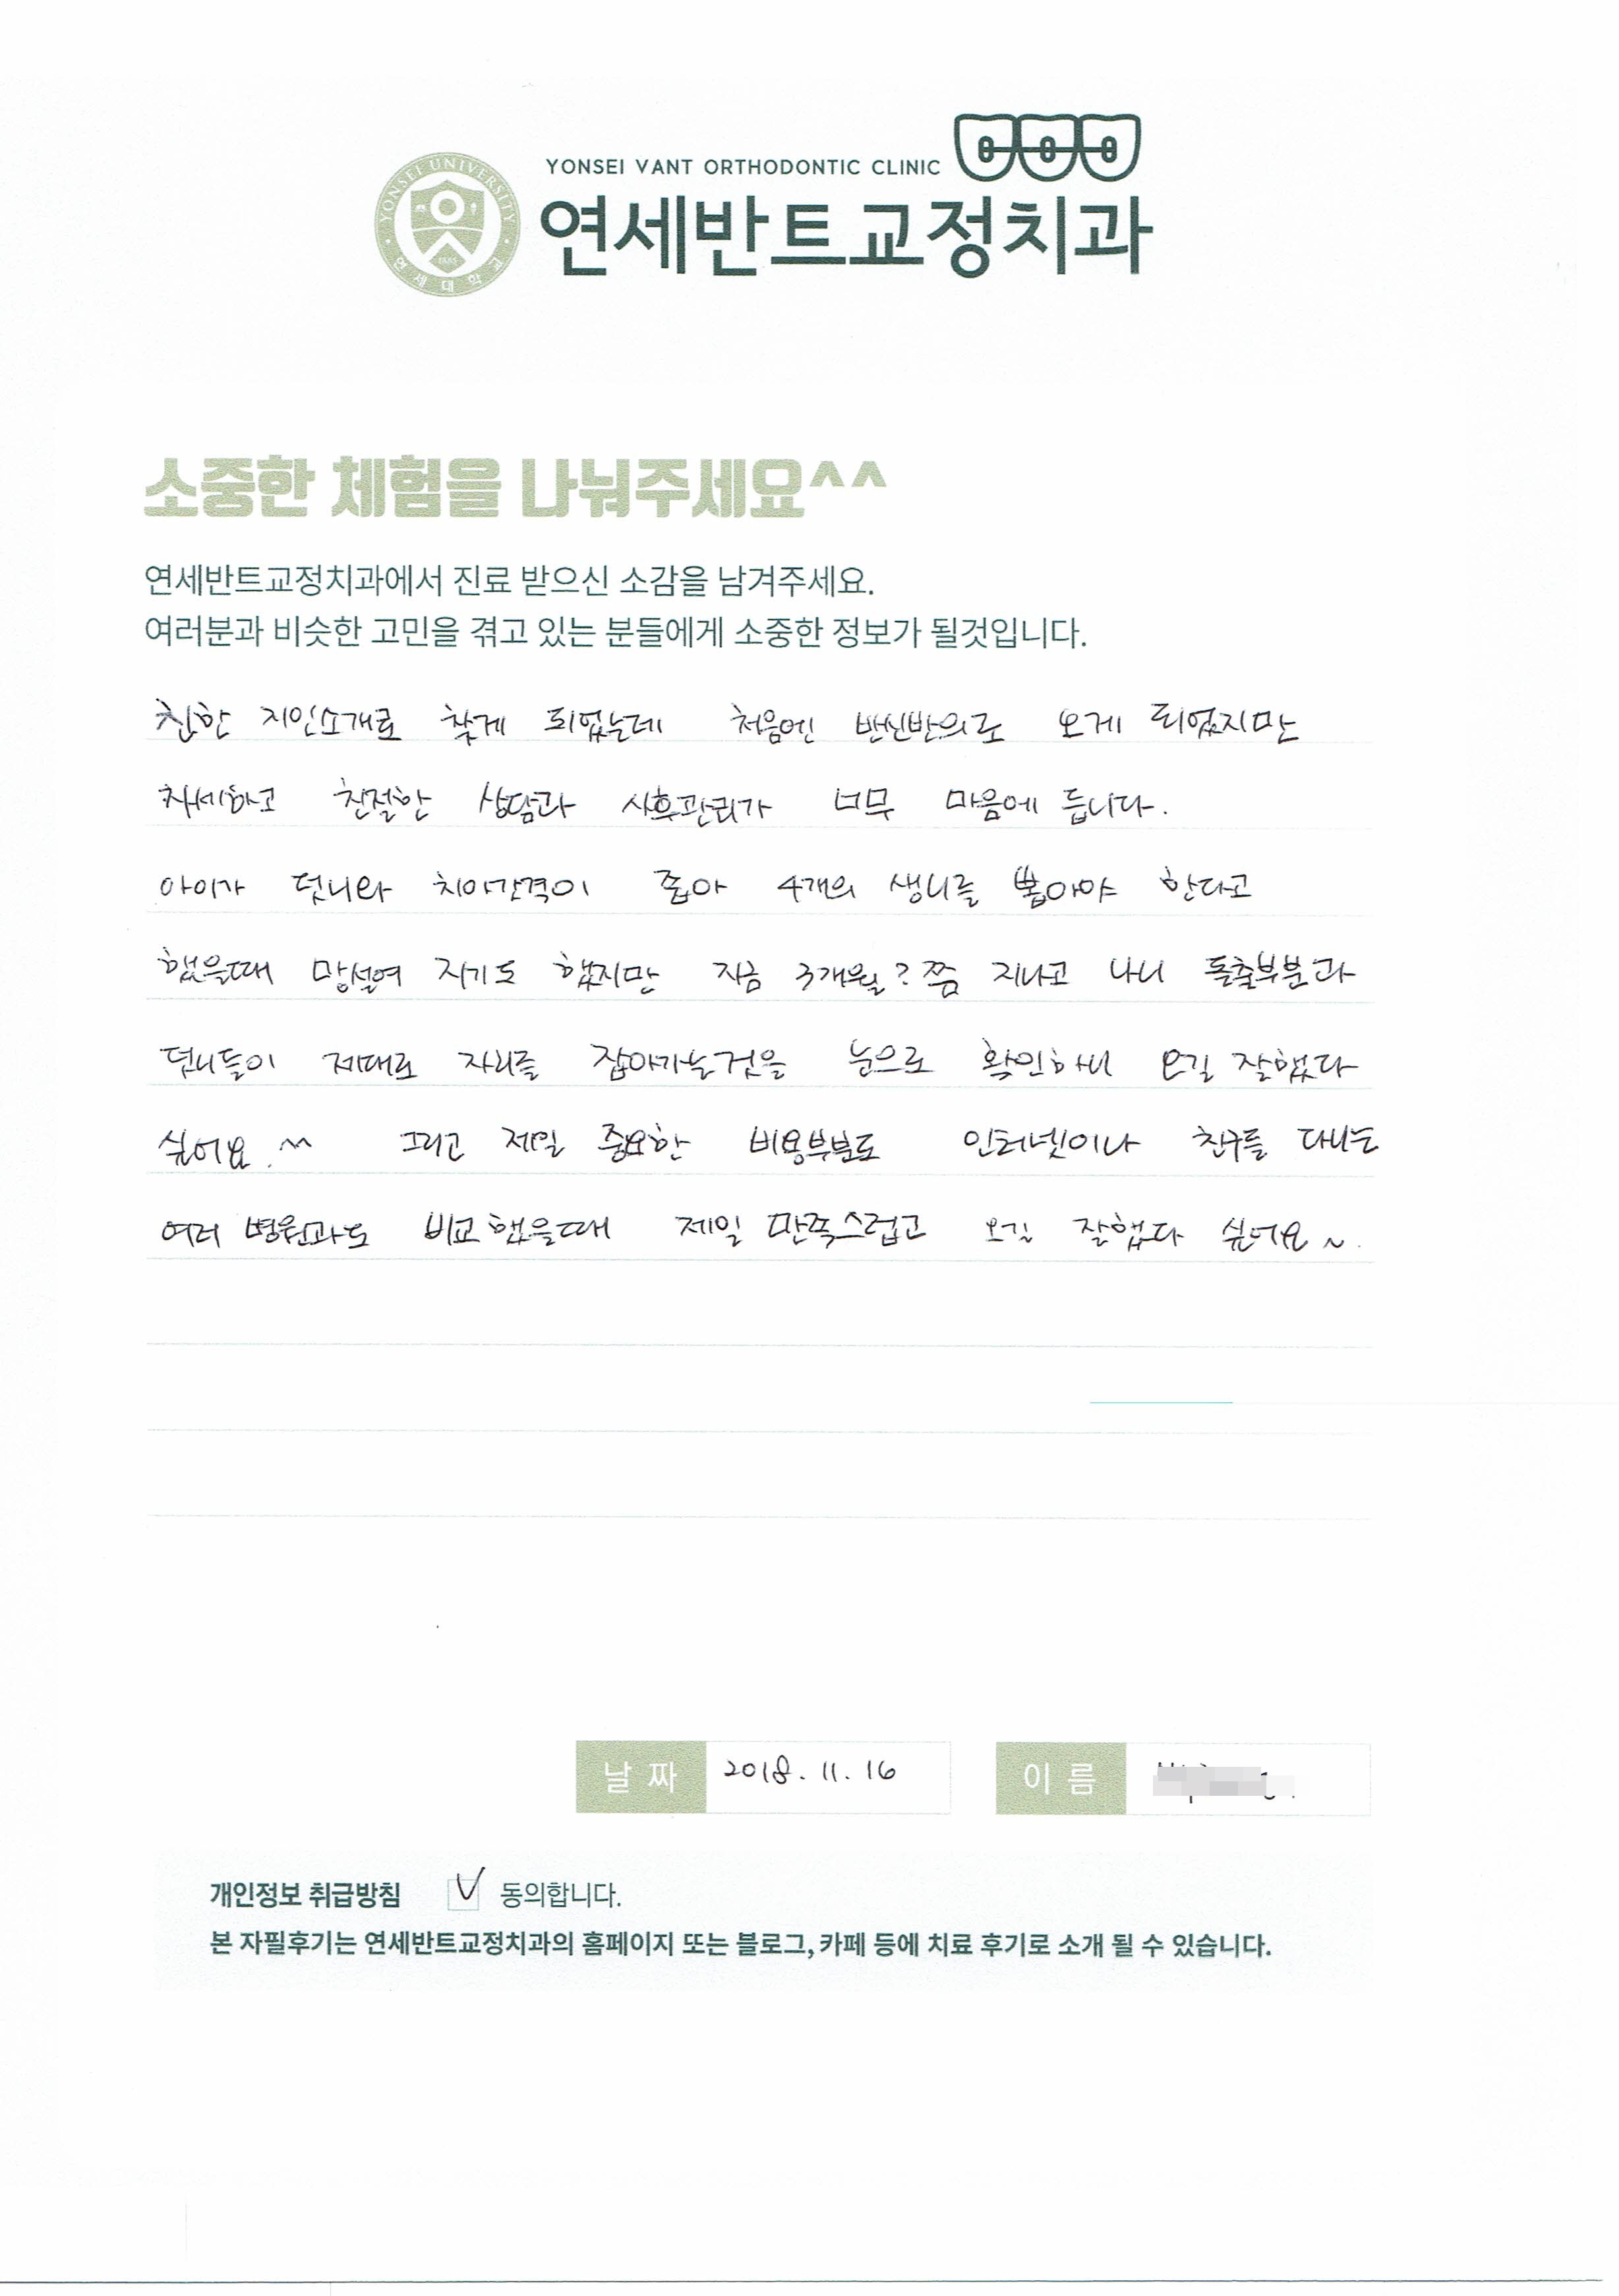 YONSEI VANT ORTHODONTIC CLINIC
YONSEI UNIVERSITY
1885
연세대학교
연세반트교정치과
소중한 체험을 나눠주세요^^
연세반트교정치과에서 진료 받으신 소감을 남겨주세요.
여러분과 비슷한 고민을 겪고 있는 분들에게 소중한 정보가 될것입니다.
친한 지인소개로 찾게 되었는데 처음엔 반신반의로 오게 되었지만
자세하고 친절한 상담과 사후관리가 너무 마음에 듭니다.
아이가 덧니와 치아간격이 좁아 4개의 생니를 뽑아야 한다고
했을때 망설여 지기도 했지만 지금 3개월?쯤 지나고 나니 돌출부분과
덧니들이 제대로 자리를 잡아가는것을 눈으로 확인하니 오길 잘했다
싶어요.^^ 그리고 제일 중요한 비용부분도 인터넷이나 친구들 다니는
여러 병원과도 비교했을때 제일 만족스럽고 오길 잘했다 싶어요~.
날짜 2018.11.16 이름
개인정보 취급방침 V 동의합니다.
본 자필후기는 연세반트교정치과의 홈페이지 또는 블로그, 카페 등에 치료 후기로 소개 될 수 있습니다.